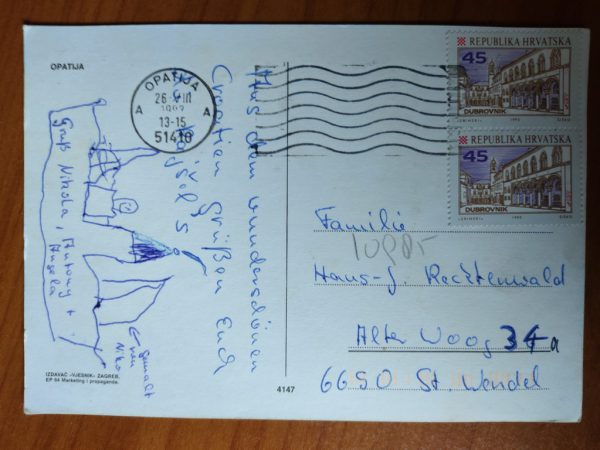 OPATIJA
OPATIJA
26 VIII
A A
13-15
51410
REPUBLIKA HRVATSKA
45
DUBROVNIK
REPUBLIKA HRVATSKA
45
DUBROVNIK
Aus dem wunderschönen
Croatien grüßen Euch
Nikola, Antony +
Angela
Gemalt
von
Niko
Familie
Hans-J. Recktenwald
Alter Woog 34a
6690 St. Wendel
IZDAVAČ «VJESNIK» ZAGREB.
EP 64 Marketing i propaganda.
4147